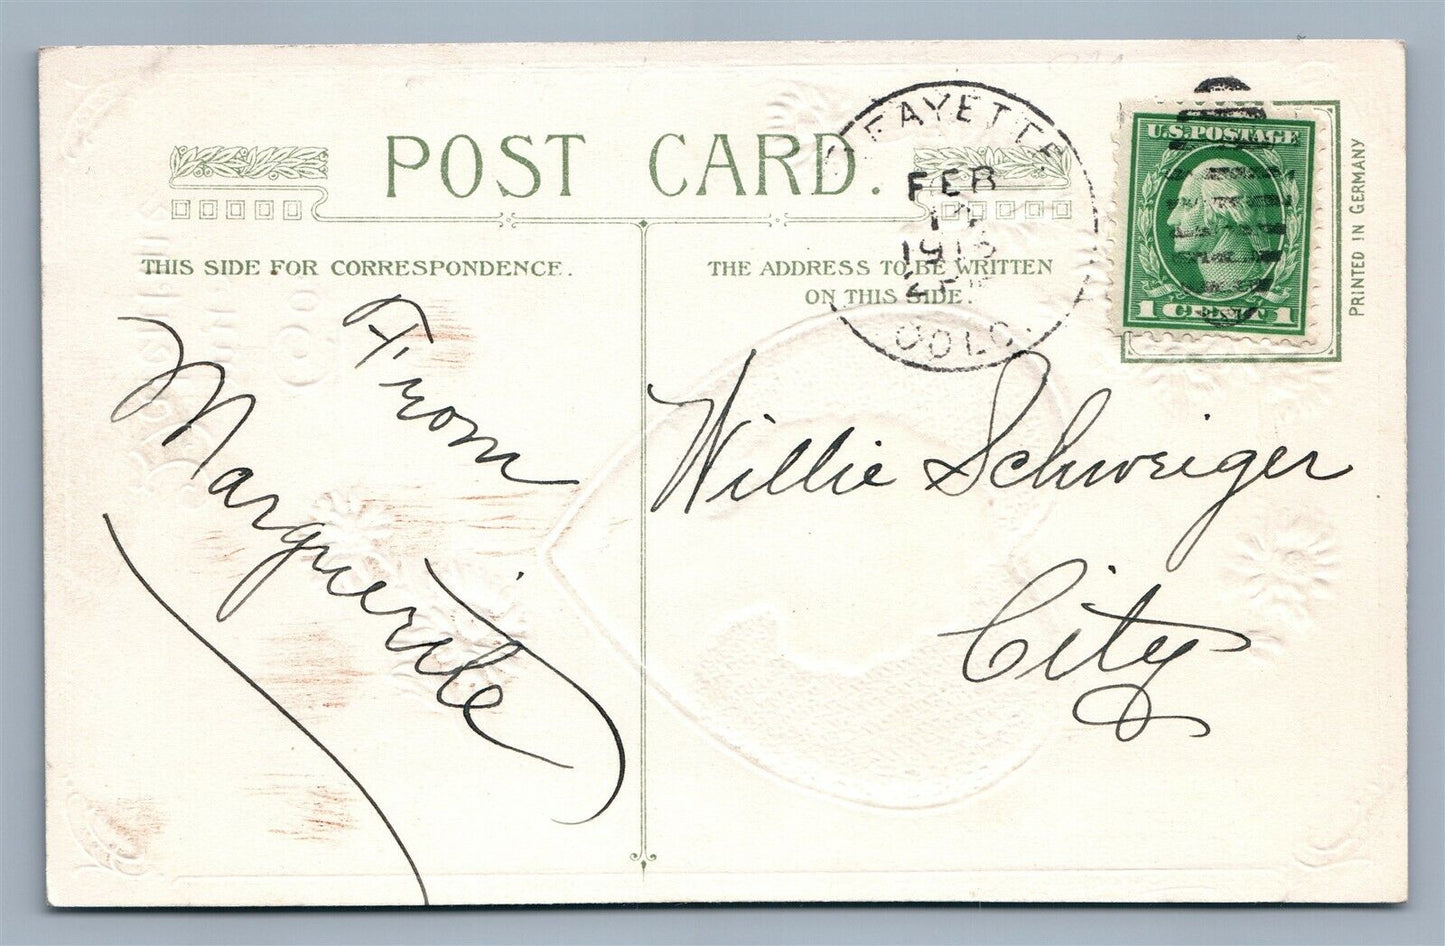 POST CARD.
THIS SIDE FOR CORRESPONDENCE.
THE ADDRESS TO BE WRITTEN
ON THIS SIDE.
FAYETTE
FEB
COLO.
U.S. POSTAGE
1 CENT 1
PRINTED IN GERMANY
From
Marguerite
Willie Schweiger
City